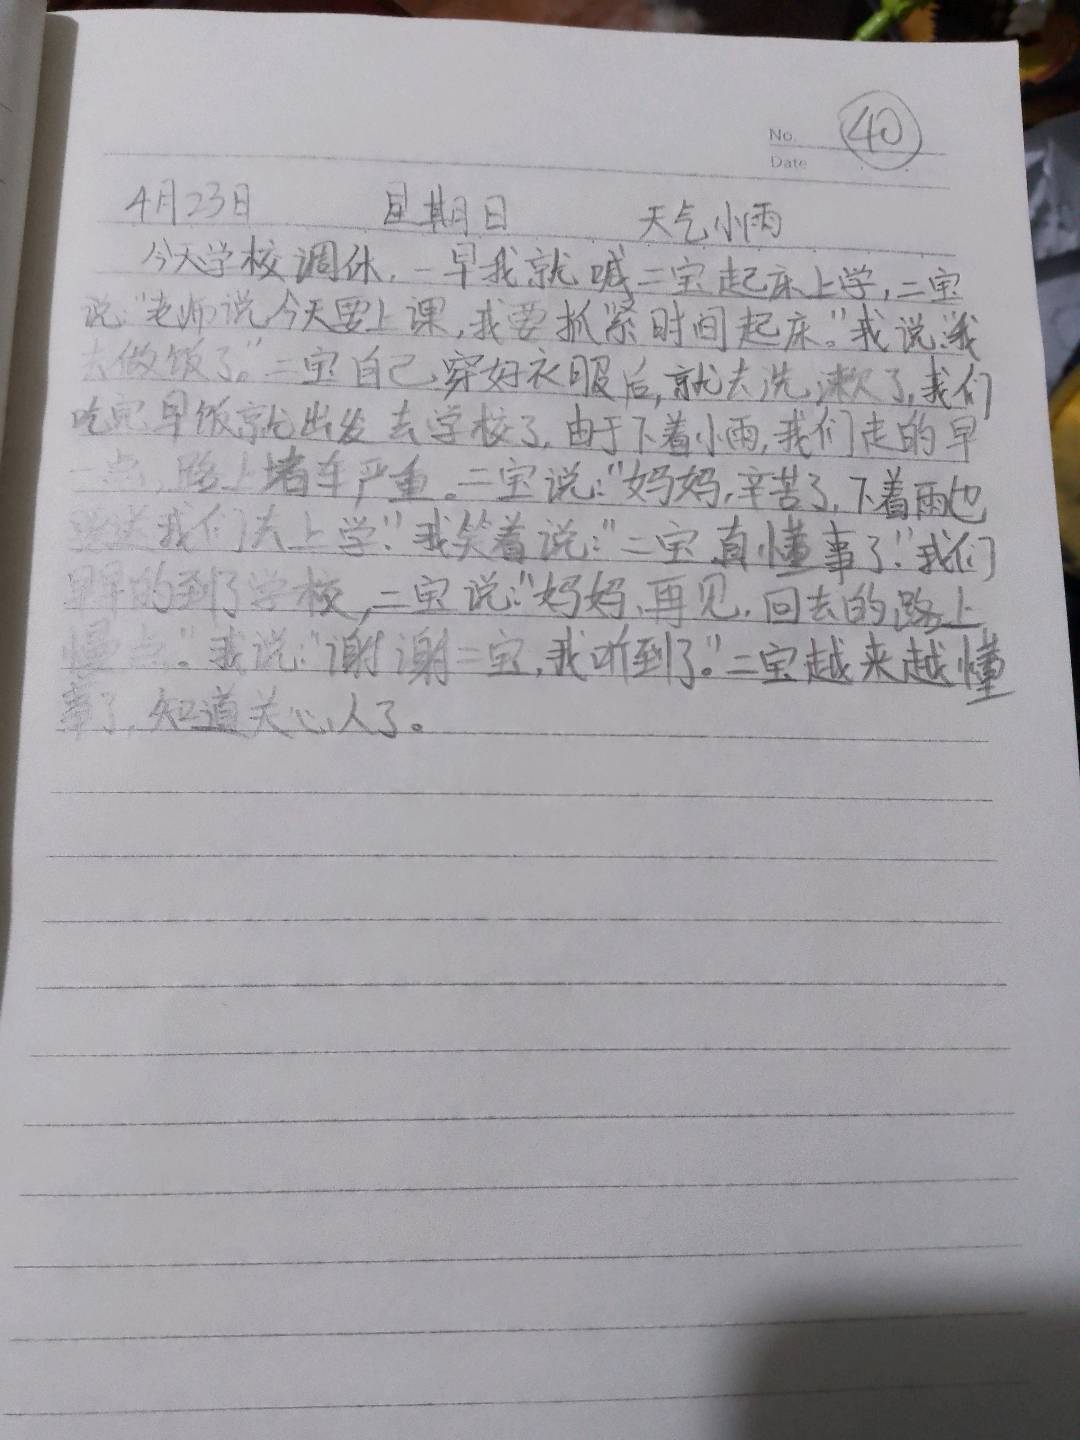 No. 40
Date
4月23日 星期日 天气小雨
今天学校调休,一早我就喊二宝起床上学,二宝
说:"老师说今天要上课,我要抓紧时间起床。"我说:"我
去做饭了。"二宝自己穿好衣服后,就去洗漱了,我们
吃完早饭就出发去学校了,由于下着小雨,我们走的早
一点,路上堵车严重。二宝说:"妈妈,辛苦了,下着雨也
要送我们去上学."我笑着说:"二宝真懂事了."我们
早早的到了学校,二宝说:"妈妈,再见,回去的路上
慢点。"我说:"谢谢二宝,我听到了。"二宝越来越懂
事了,知道关心人了。